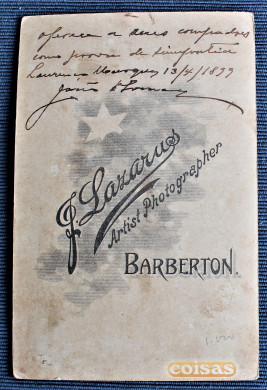 oferece a seus compadres
como prova de simpathia
Lourenço Marques 13/4/1899
J. Lazarus
Artist Photographer
BARBERTON.
coisas